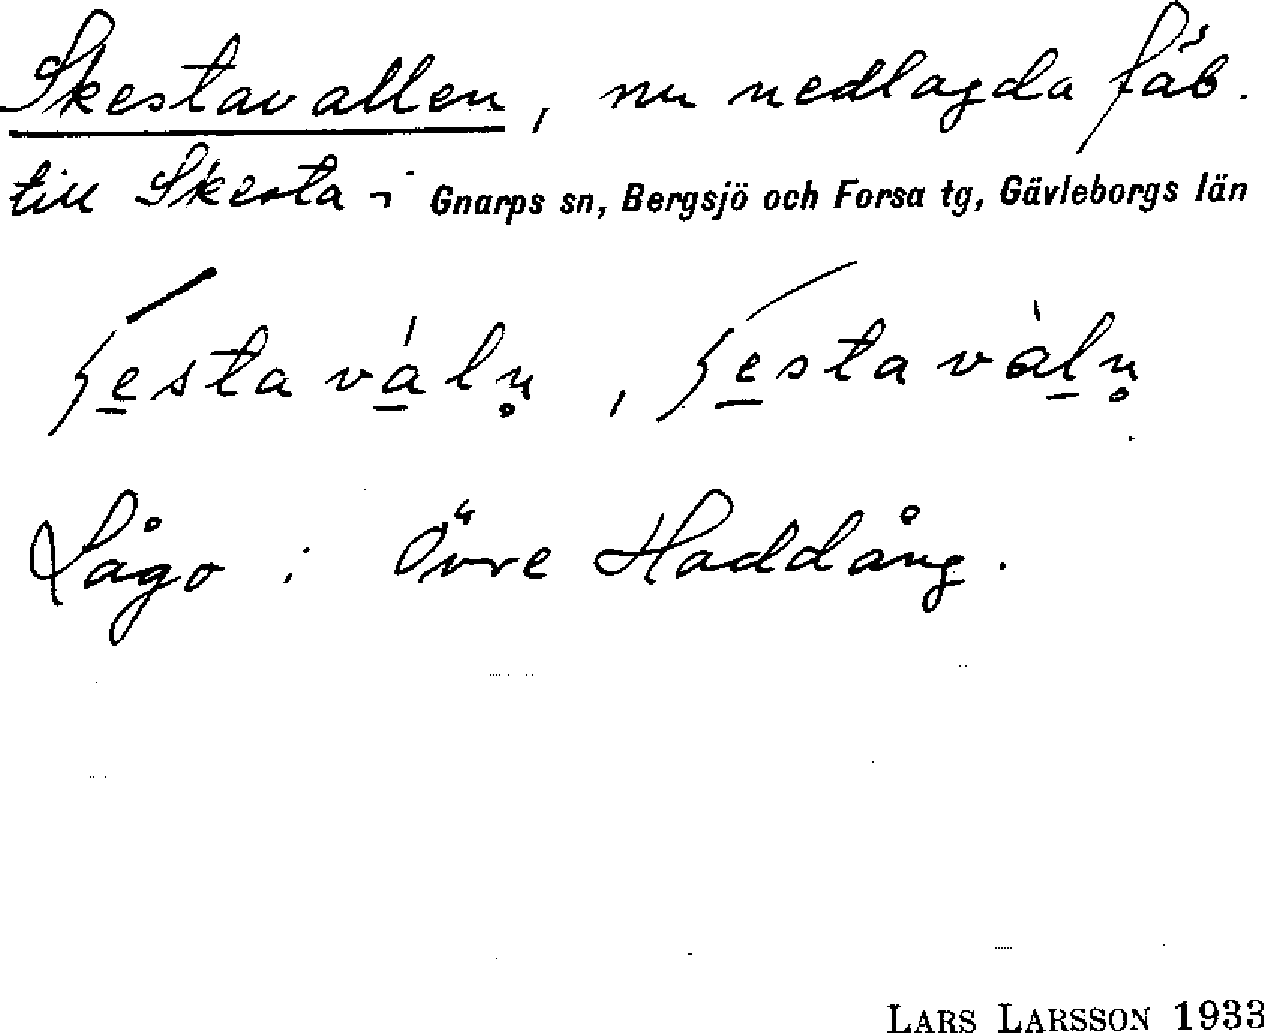 Skestavallen, nu nedlagda fäb.
till Skesta i Gnarps sn, Bergsjö och Forsa tg, Gävleborgs län
Lågo i Övre Haddång.
LARS LARSSON 1933